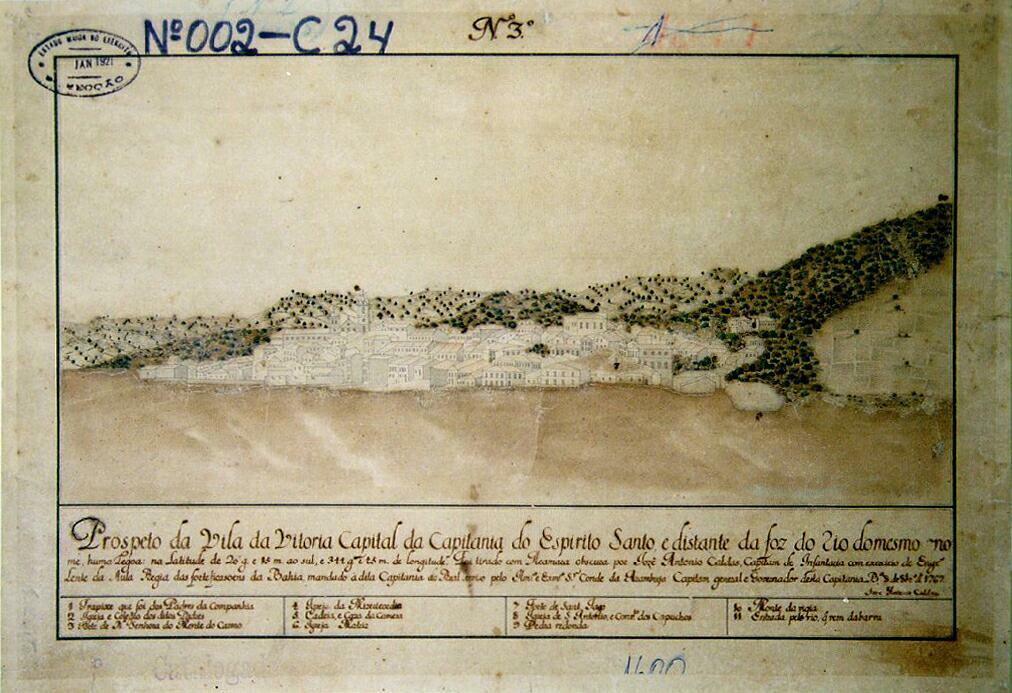 Nº 002-C 24
Nº 3º
ESTADO MAIOR DO EXERCITO
JAN 1921
SECÇÃO
Prospeto da Vila da Vitoria Capital da Capitania do Espirito Santo e distante da foz do Rio domesmo no
me, huma Legoa: na Latitude de 20 g. e 15 m. ao sul, e de longitude. Foi tirado com Camara obscura por Jozé Antonio Caldas, Capitam de Infantaria com exercicio de Engr.º
Lente da Aula Regia das fortificasoens da Bahia, mandado a dita Capitania do Real servo pelo Ilmº e Exmº Sr. Conde de Azambuja Capitam general e Governador desta Capitania. Bª de 1767.
Jozé Antonio Caldas
1 Trapixe que foi dos Padres da Companhia
2 Igreja e Colegio dos ditos Padres
3 de Nª Senhora do Monte do Carmo
4 Igreja da Mizericordia
5 Cadeia, e Caza da Camera
6 Igreja Matriz
7 Forte de Sant. Iago
8 Igreja de S. Antonio, e Convto dos Capuchos
9 Pedra redonda
10 Monte da vigia
11 Entrada pelo rio, q vem da barra
Catalogado
1600